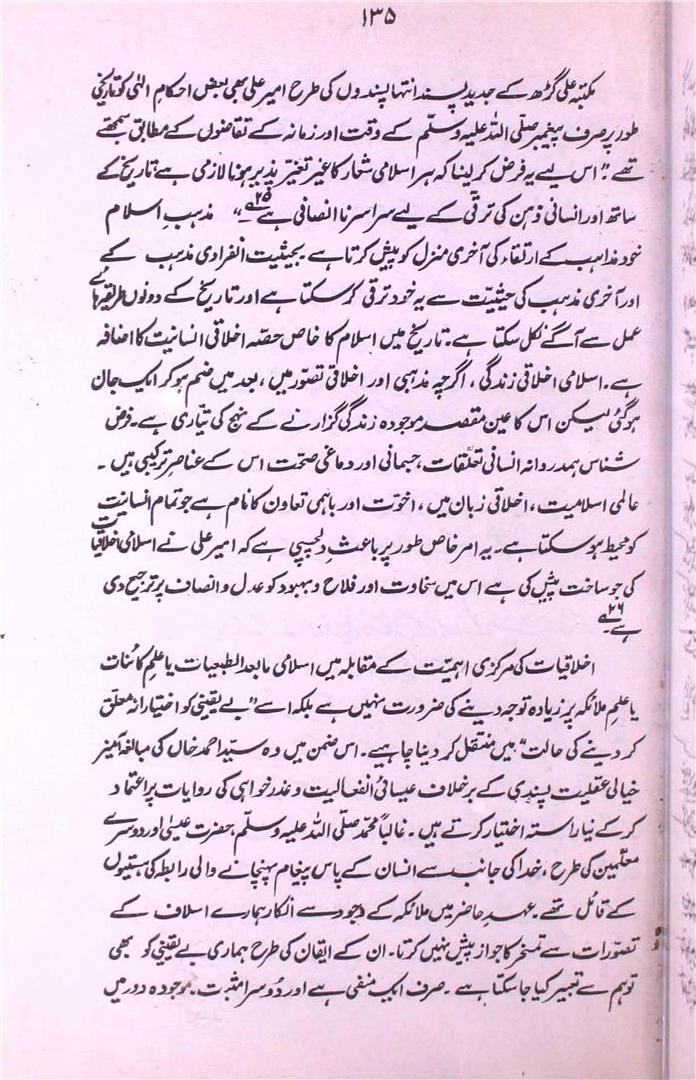 ۱۳۵
مکتبہ علی گڑھ کے جدید پسند انتہا پسندوں کی طرح امیر علی بھی بعض احکامِ الٰہی کو تاریخی
طور پر صرف پیغمبر صلّی اللہ علیہ وسلّم کے وقت اور زمانہ کے تقاضوں کے مطابق سمجھتے
تھے۔ "اس لیے یہ فرض کر لینا کہ ہر اسلامی شعار کا غیر تغیّر پذیر ہونا لازمی ہے تاریخ کے
ساتھ اور انسانی ذہن کی ترقی کے لیے سراسر ناانصافی ہے ۲۵؎۔" مذہبِ اسلام
خود مذاہب کے ارتقاء کی آخری منزل کو پیش کرتا ہے۔ بحیثیت انفرادی مذہب کے
اور آخری مذہب کی حیثیّت سے یہ خود ترقی کر سکتا ہے اور تاریخ کے دونوں طریقہائے
عمل سے آگے نکل سکتا ہے۔ تاریخ میں اسلام کا خاص حصّہ اخلاقی انسانیت کا اضافہ
ہے۔ اسلامی اخلاقی زندگی، اگرچہ مذہبی اور اخلاقی تصوّر میں، بعد میں ضم ہو کر ایک جان
ہو گئی لیکن اس کا عین مقصد موجودہ زندگی گزارنے کے نہج کی تیّاری ہے۔ فرض
شناس ہمدردانہ انسانی تعلّقات، جسمانی اور دماغی صحت اس کے عناصرِ ترکیبی ہیں۔
عالمی اسلامیت، اخلاقی زبان میں، اخوّت اور باہمی تعاون کا نام ہے جو تمام انسانیت
کو محیط ہو سکتا ہے۔ یہ امر خاص طور پر باعثِ دلچسپی ہے کہ امیر علی نے اسلامی اخلاقیات
کی جو ساخت پیش کی ہے اس میں سخاوت اور فلاح و بہبود کو عدل و انصاف پر ترجیح دی
ہے ۲۶؎۔
اخلاقیات کی مرکزی اہمیّت کے مقابلہ میں اسلامی مابعد الطبعیات یا علمِ کائنات
یا علمِ ملائکہ پر زیادہ توجہ دینے کی ضرورت نہیں ہے بلکہ اسے "بے یقینی کو اختیارانہ معلّق
کر دینے کی حالت" میں منتقل کر دینا چاہیے۔ اس ضمن میں وہ سیّد احمد خاں کی مبالغہ آمیز
خیالی عقلیت پسندی کے برخلاف عیسائی انفعالیت و عذر خواہی کی روایات پر اعتماد
کر کے نیا راستہ اختیار کرتے ہیں۔ غالباً محمّد صلّی اللہ علیہ وسلّم، حضرت عیسیٰ اور دوسرے
معلّمین کی طرح، خدا کی جانب سے انسان کے پاس پیغام پہنچانے والی رابطہ کی ہستیوں
کے قائل تھے۔ عہدِ حاضر میں ملائکہ کے وجود سے انکار ہمارے اسلاف کے
تصوّرات سے تمسخر کا جواز پیش نہیں کرتا۔ ان کے ایقان کی طرح ہماری بے یقینی کو بھی
توہم سے تعبیر کیا جا سکتا ہے۔ صرف ایک منفی ہے اور دوسرا مثبت۔ موجودہ دور میں